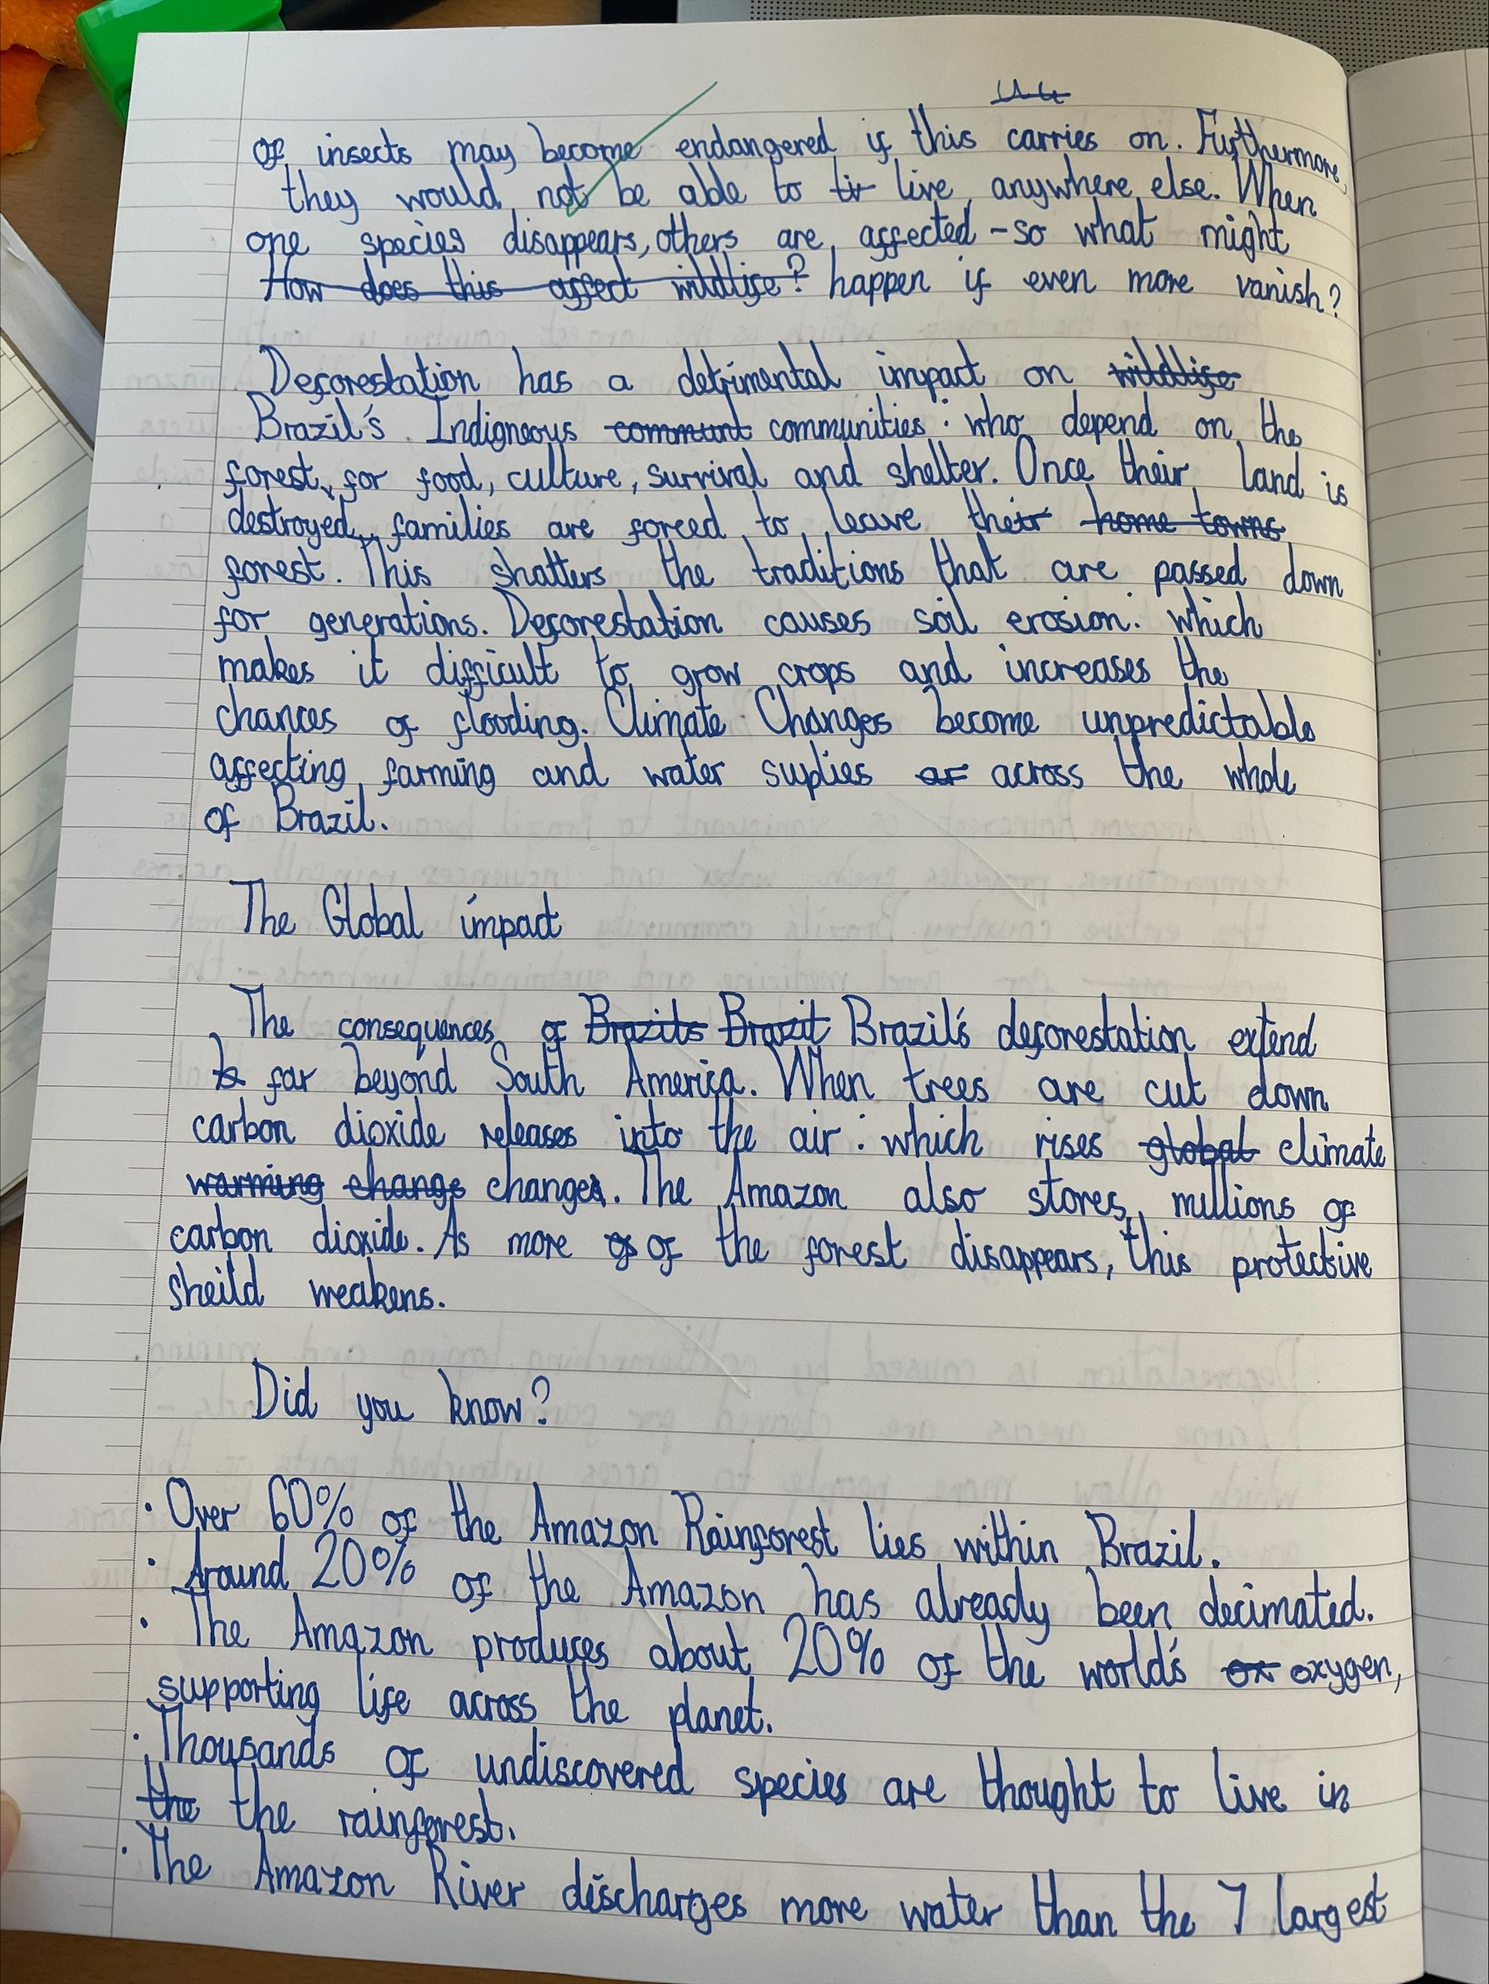 of insects may become endangered if this carries on. Furthermore,
they would not be able to live anywhere else. When
one species disappears, others are affected - so what might
How does this affect wildlife? happen if even more vanish?
Deforestation has a detrimental impact on wildlife
Brazil's Indigneous communt communities : who depend on the
forest, for food, culture, survival and shelter. Once their land is
destroyed, families are forced to leave their home towns
forest. This shatters the traditions that are passed down
for generations. Deforestation causes soil erosion : which
makes it difficult to grow crops and increases the
chances of flooding. Climate Changes become unpredictable
affecting farming and water suplies ar across the whole
of Brazil.
The Global impact
The consequences of Brazils Brazil Brazil's deforestation extend
far beyond South America. When trees are cut down
carbon dioxide releases into the air : which rises global climate
warming change changes. The Amazon also stores millions of
carbon dioxide. As more of of the forest disappears, this protective
sheild weakens.
Did you know?
· Over 60% of the Amazon Rainforest lies within Brazil.
· Around 20% of the Amazon has already been decimated.
· The Amazon produces about 20% of the world's ox oxygen,
supporting life across the planet.
· Thousands of undiscovered species are thought to live in
the the rainforest.
· The Amazon River discharges more water than the 7 largest